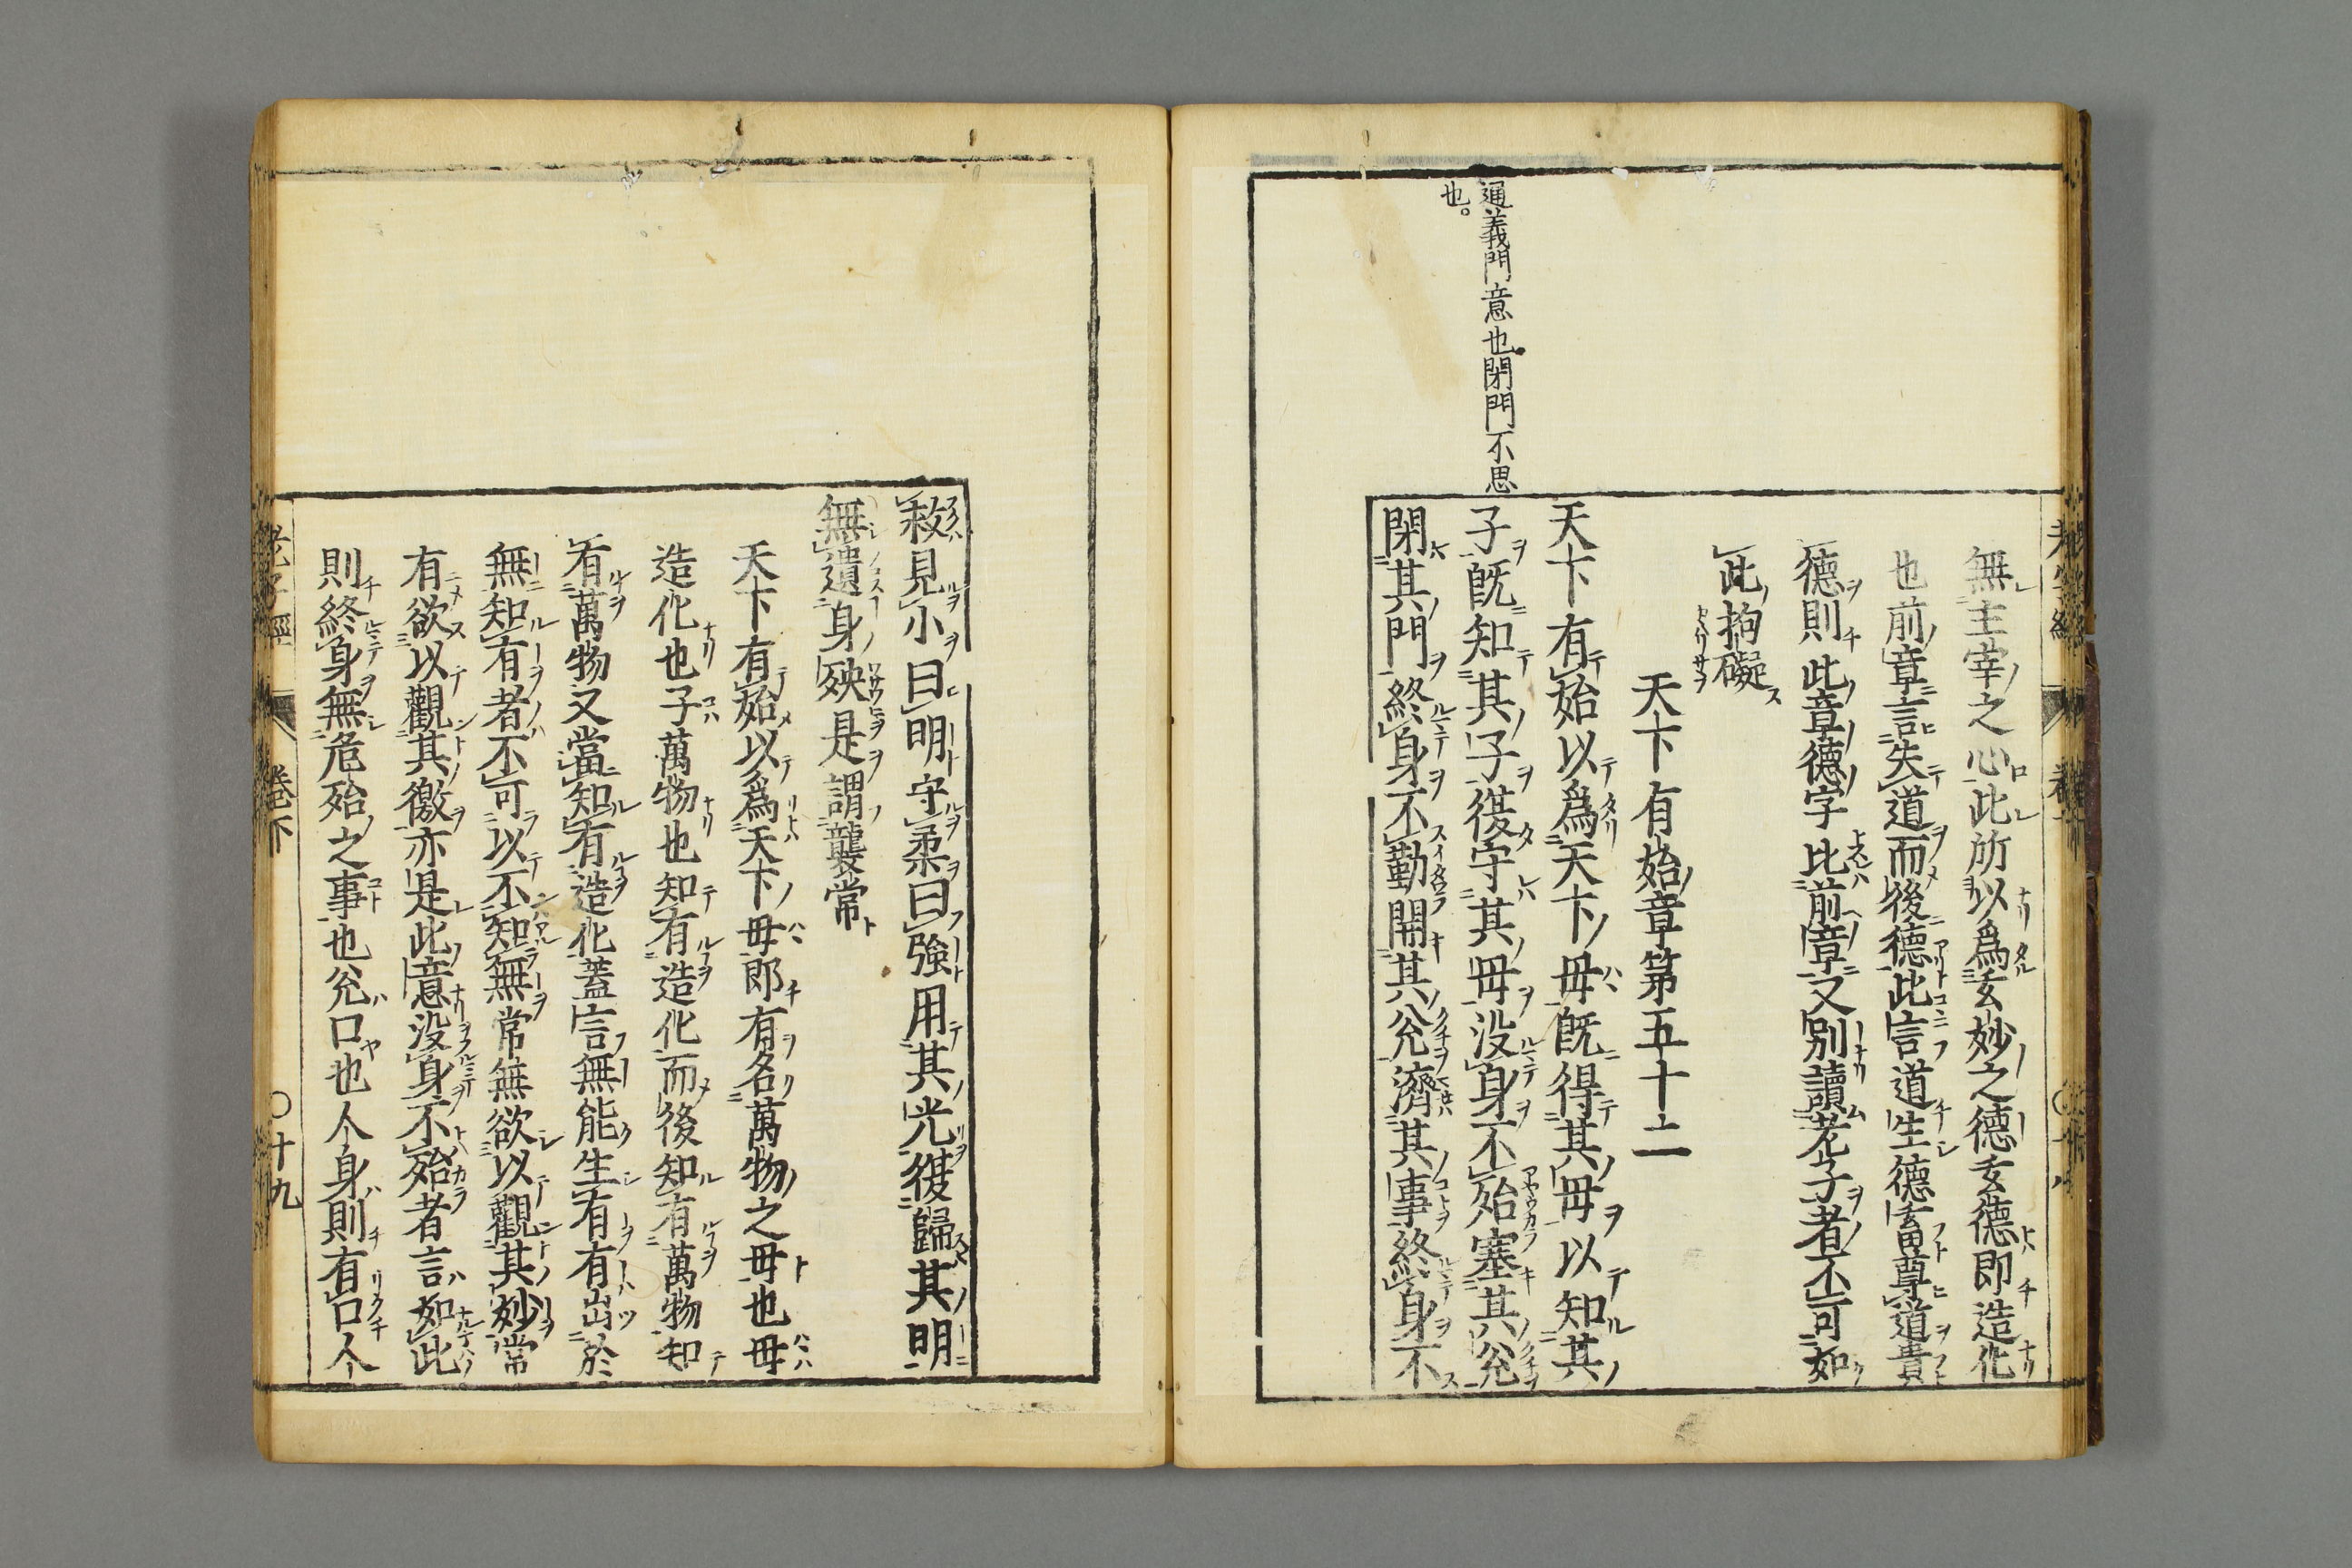 通義門意也閉門不思
也。
無主宰之心此所以爲玄妙之德玄德即造化
也前章言失道而後德此言道生德畜尊道貴
德則此章德字比前章又別讀老子者不可如
此拘礙
天下有始章第五十二
天下有始以爲天下母既得其母以知其
子既知其子復守其母没身不殆塞其兊
閉其門終身不勤開其兊濟其事終身不
老子經
卷下
救見小曰明守柔曰強用其光復歸其明
無遺身殃是謂襲常
天下有始以爲天下母即有名萬物之母也母
造化也子萬物也知有造化而後知有萬物知
有萬物又當知有造化蓋言無能生有有出於
無知有者不可以不知無常無欲以觀其妙常
有欲以觀其徼亦是此意没身不殆者言如此
則終身無危殆之事也兊口也人身則有口人
老子經 卷下 〇十九